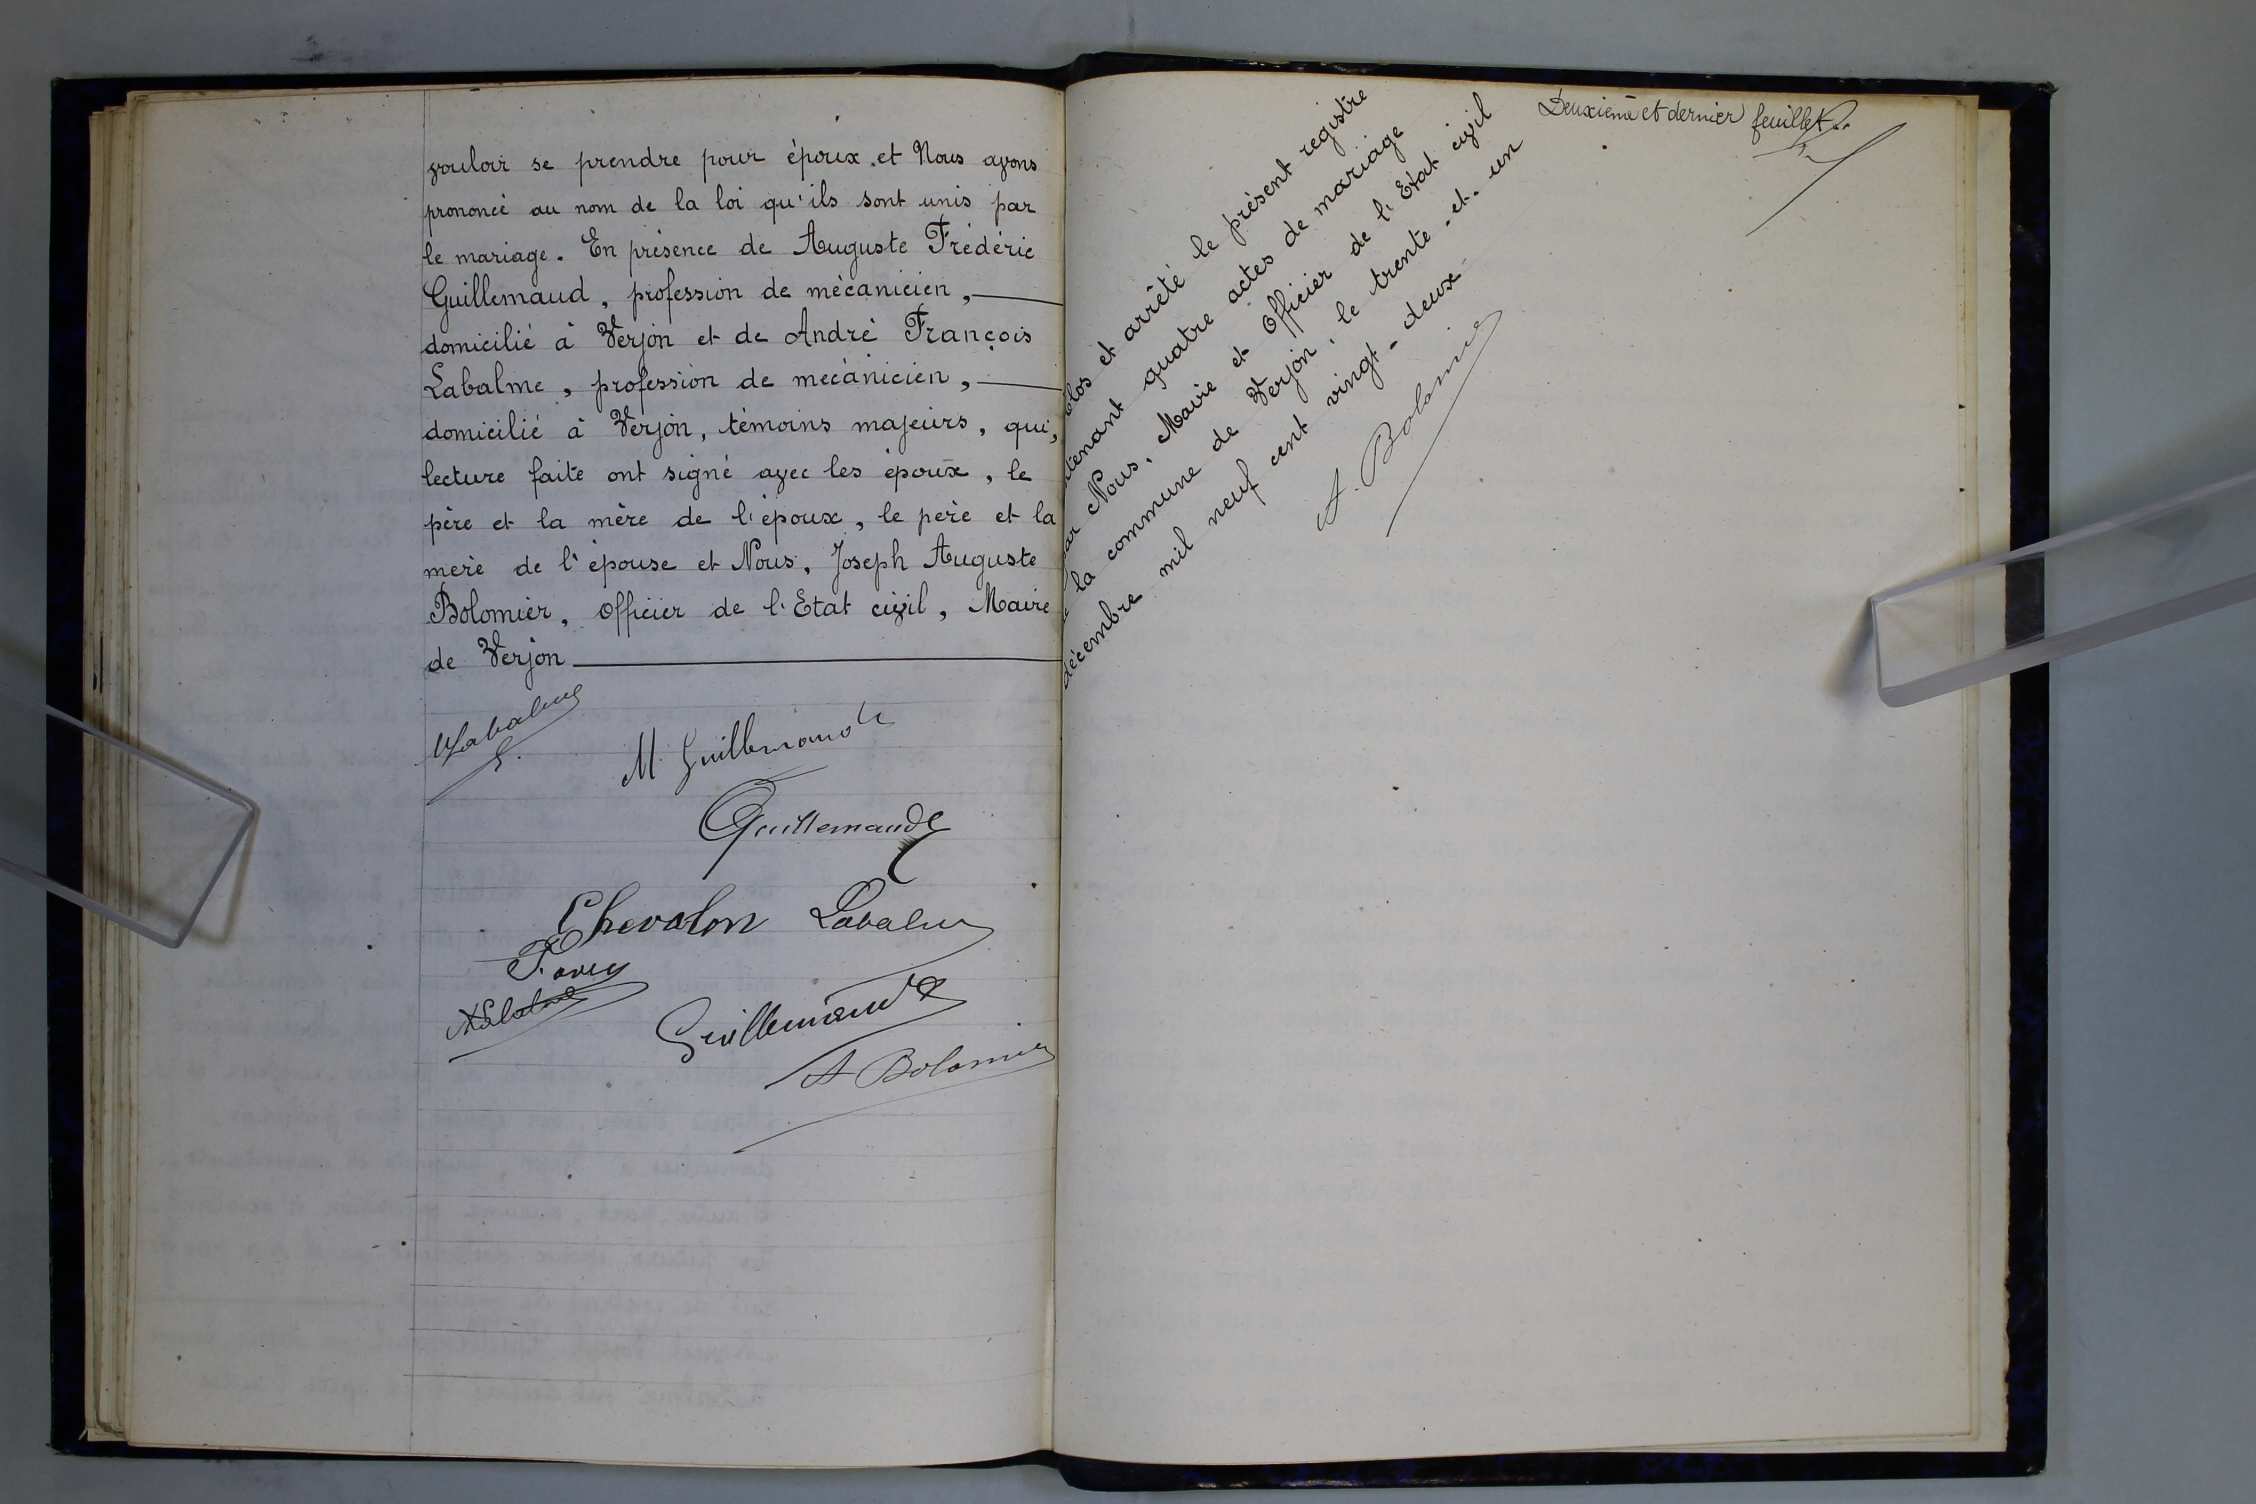 vouloir se prendre pour époux. et Nous avons
prononcé au nom de la loi qu'ils sont unis par
le mariage. En présence de Auguste Frédéric
Guillemaud, profession de mécanicien,
domicilié à Verjon et de André François
Labalme, profession de mécanicien,
domicilié à Verjon, témoins majeurs, qui,
lecture faite ont signé avec les époux, le
père et la mère de l'époux, le père et la
mère de l'épouse et Nous, Joseph Auguste
Bolomier, officier de l'Etat civil, Maire
de Verjon
Labalme
M. Guillemaud
Guillemaud
Chevalon Labalme
Guillemaud
A Bolomier
Deuxième et dernier feuillet
Clos et arrêté le présent registre
tenant quatre actes de mariage
par Nous, Maire et Officier de l'Etat civil
de la commune de Verjon, le trente-et-un
décembre mil neuf cent vingt-deux
A. Bolomier